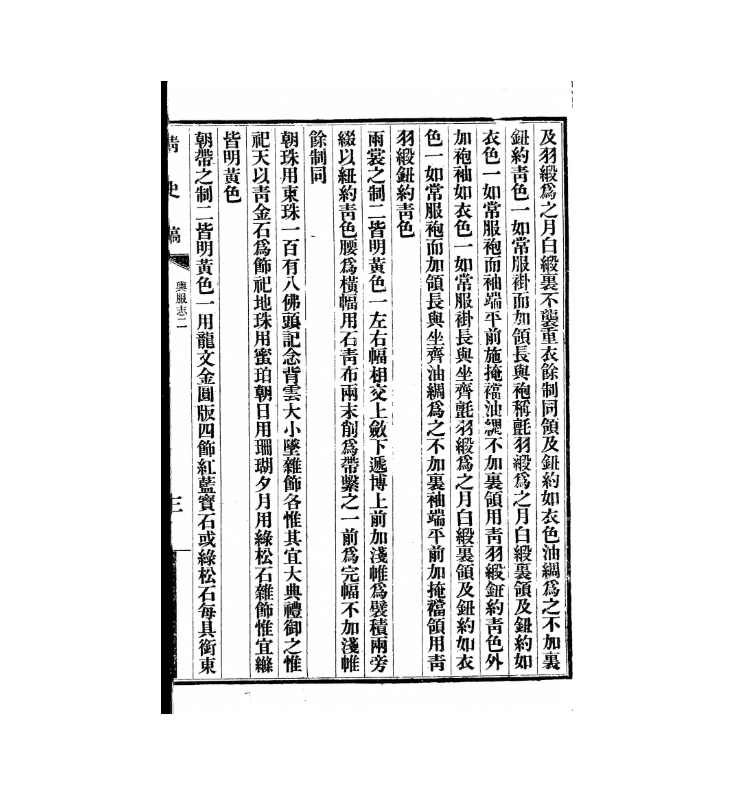 及羽緞爲之月白緞裏不襲重衣餘制同領及鈕約如衣色油綢爲之不加裏
鈕約靑色一如常服褂而加領長與袍稱氈羽緞爲之月白緞裏領及鈕約如
衣色一如常服袍而袖端平前施掩襠油綢不加裏領用靑羽緞鈕約靑色外
加袍袖如衣色一如常服褂長與坐齊氈羽緞爲之月白緞裏領及鈕約如衣
色一如常服袍而加領長與坐齊油綢爲之不加裏袖端平前加掩襠領用靑
羽緞鈕約靑色
雨裳之制二皆明黃色一左右幅相交上斂下遞博上前加淺帷爲襞積兩旁
綴以紐約靑色腰爲橫幅用石靑布兩末削爲帶繫之一前爲完幅不加淺帷
餘制同
朝珠用東珠一百有八佛頭記念背雲大小墜雜飾各惟其宜大典禮御之惟
祀天以靑金石爲飾祀地珠用蜜珀朝日用珊瑚夕月用綠松石雜飾惟宜縧
皆明黃色
朝帶之制二皆明黃色一用龍文金圓版四飾紅藍寶石或綠松石每具銜東
淸史稿
輿服志二
三